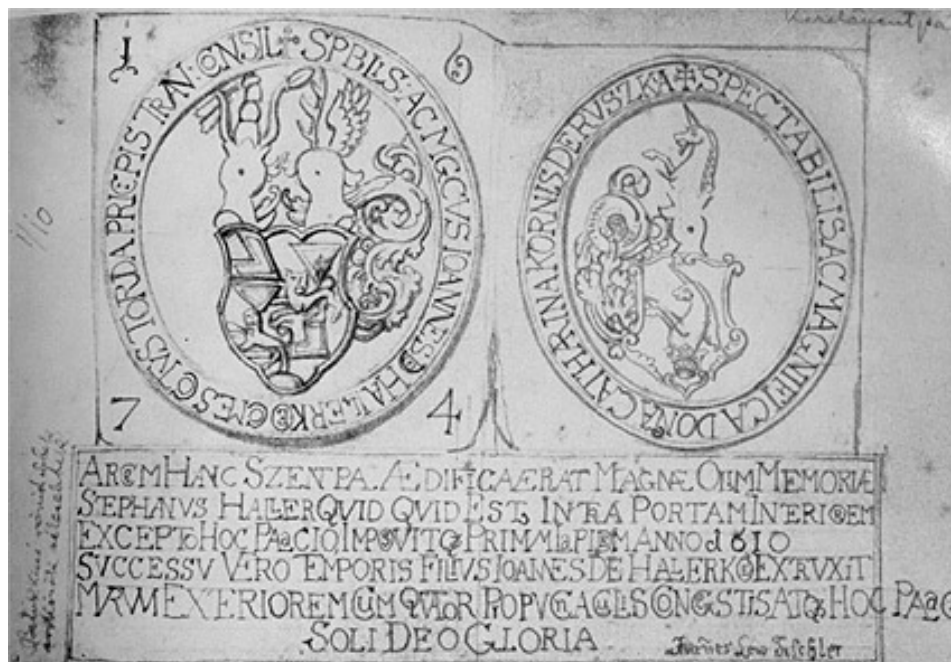 1 6
SPBILS : AC MGCVS IOANNES D HALLERKÖ CNES CTVS TORDA PRICIPIS TRAN : CNSIL
SPECTABILIS AC MAGNIFICA DONA CATHARINA KORNIS DE RUSZKA
7 4
1/10
ARCEM HANC SZENTPA. ÆDIFICAERAT MAGNÆ OLIM MEMORIÆ
STEPHANVS HALLER QVID QVID EST INTRA PORTAM INTERIOREM
EXCEPTO HOC PALACIO, IMPSVITQ PRIMM LAPIEM ANNO 1610
SVCCESSV VERO TEMPORIS FILIVS IOANNES DE HALLERKÖ EXTRVXIT
MRVM EXTERIOREM CUM QVATOR PROPVGNACVLIS CONGSTIS ATQ HOC PALAC
SOLI DEO GLORIA